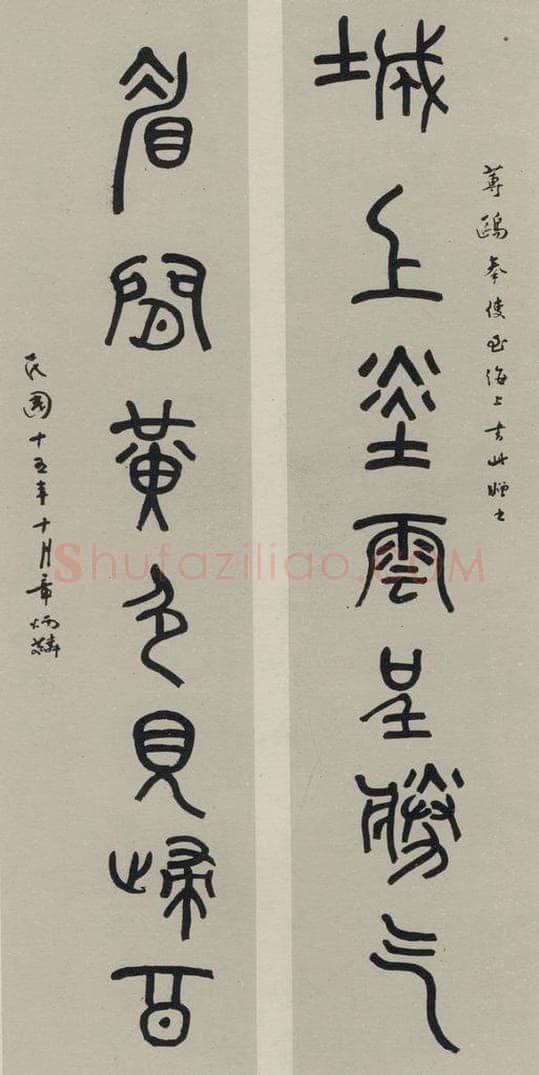 蓴鷗奉使至海上書此贈之
城上赤雲呈勝气
眉間黃色見歸期
民國十五年十月章炳麟
Shufaziliao.COM